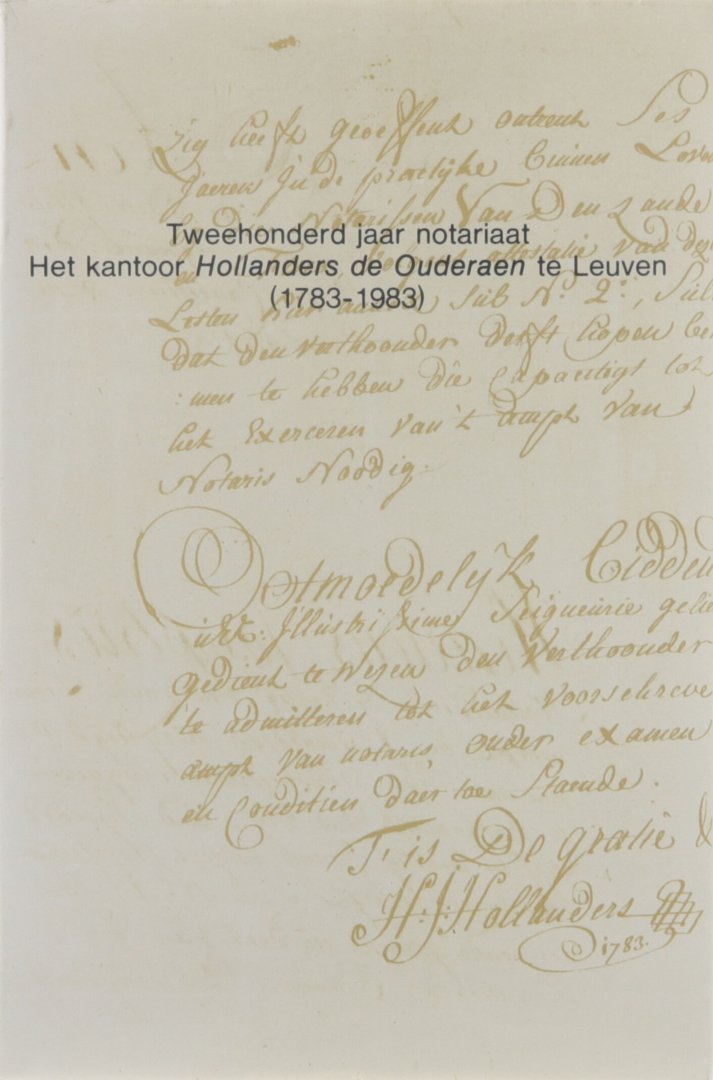 Zig heeft geoeffent ontrent Ses
Jaeren in de practijke binnen Loven
Notarissen Van Den Zande
Tweehonderd jaar notariaat
en attestatie van des
Het kantoor Hollanders de Ouderaen te Leuven
(1783-1983)
Letten sub N.º 2º, Sul
dat den verthoonder derft hopen be
:men te hebben die capaciteyt tot
het Exerceren van 't ampt van
Notaris Noodig.
Otmoedelijk bidden
uwe: Jllustrissime Seigneurie gelie
gedient te wesen den Verthoonder
te admitteren tot het voorschreve
ampt van notaris, onder examen
en Conditien daer toe Staende.
T' is De gratie
H: J: Hollanders
1783.